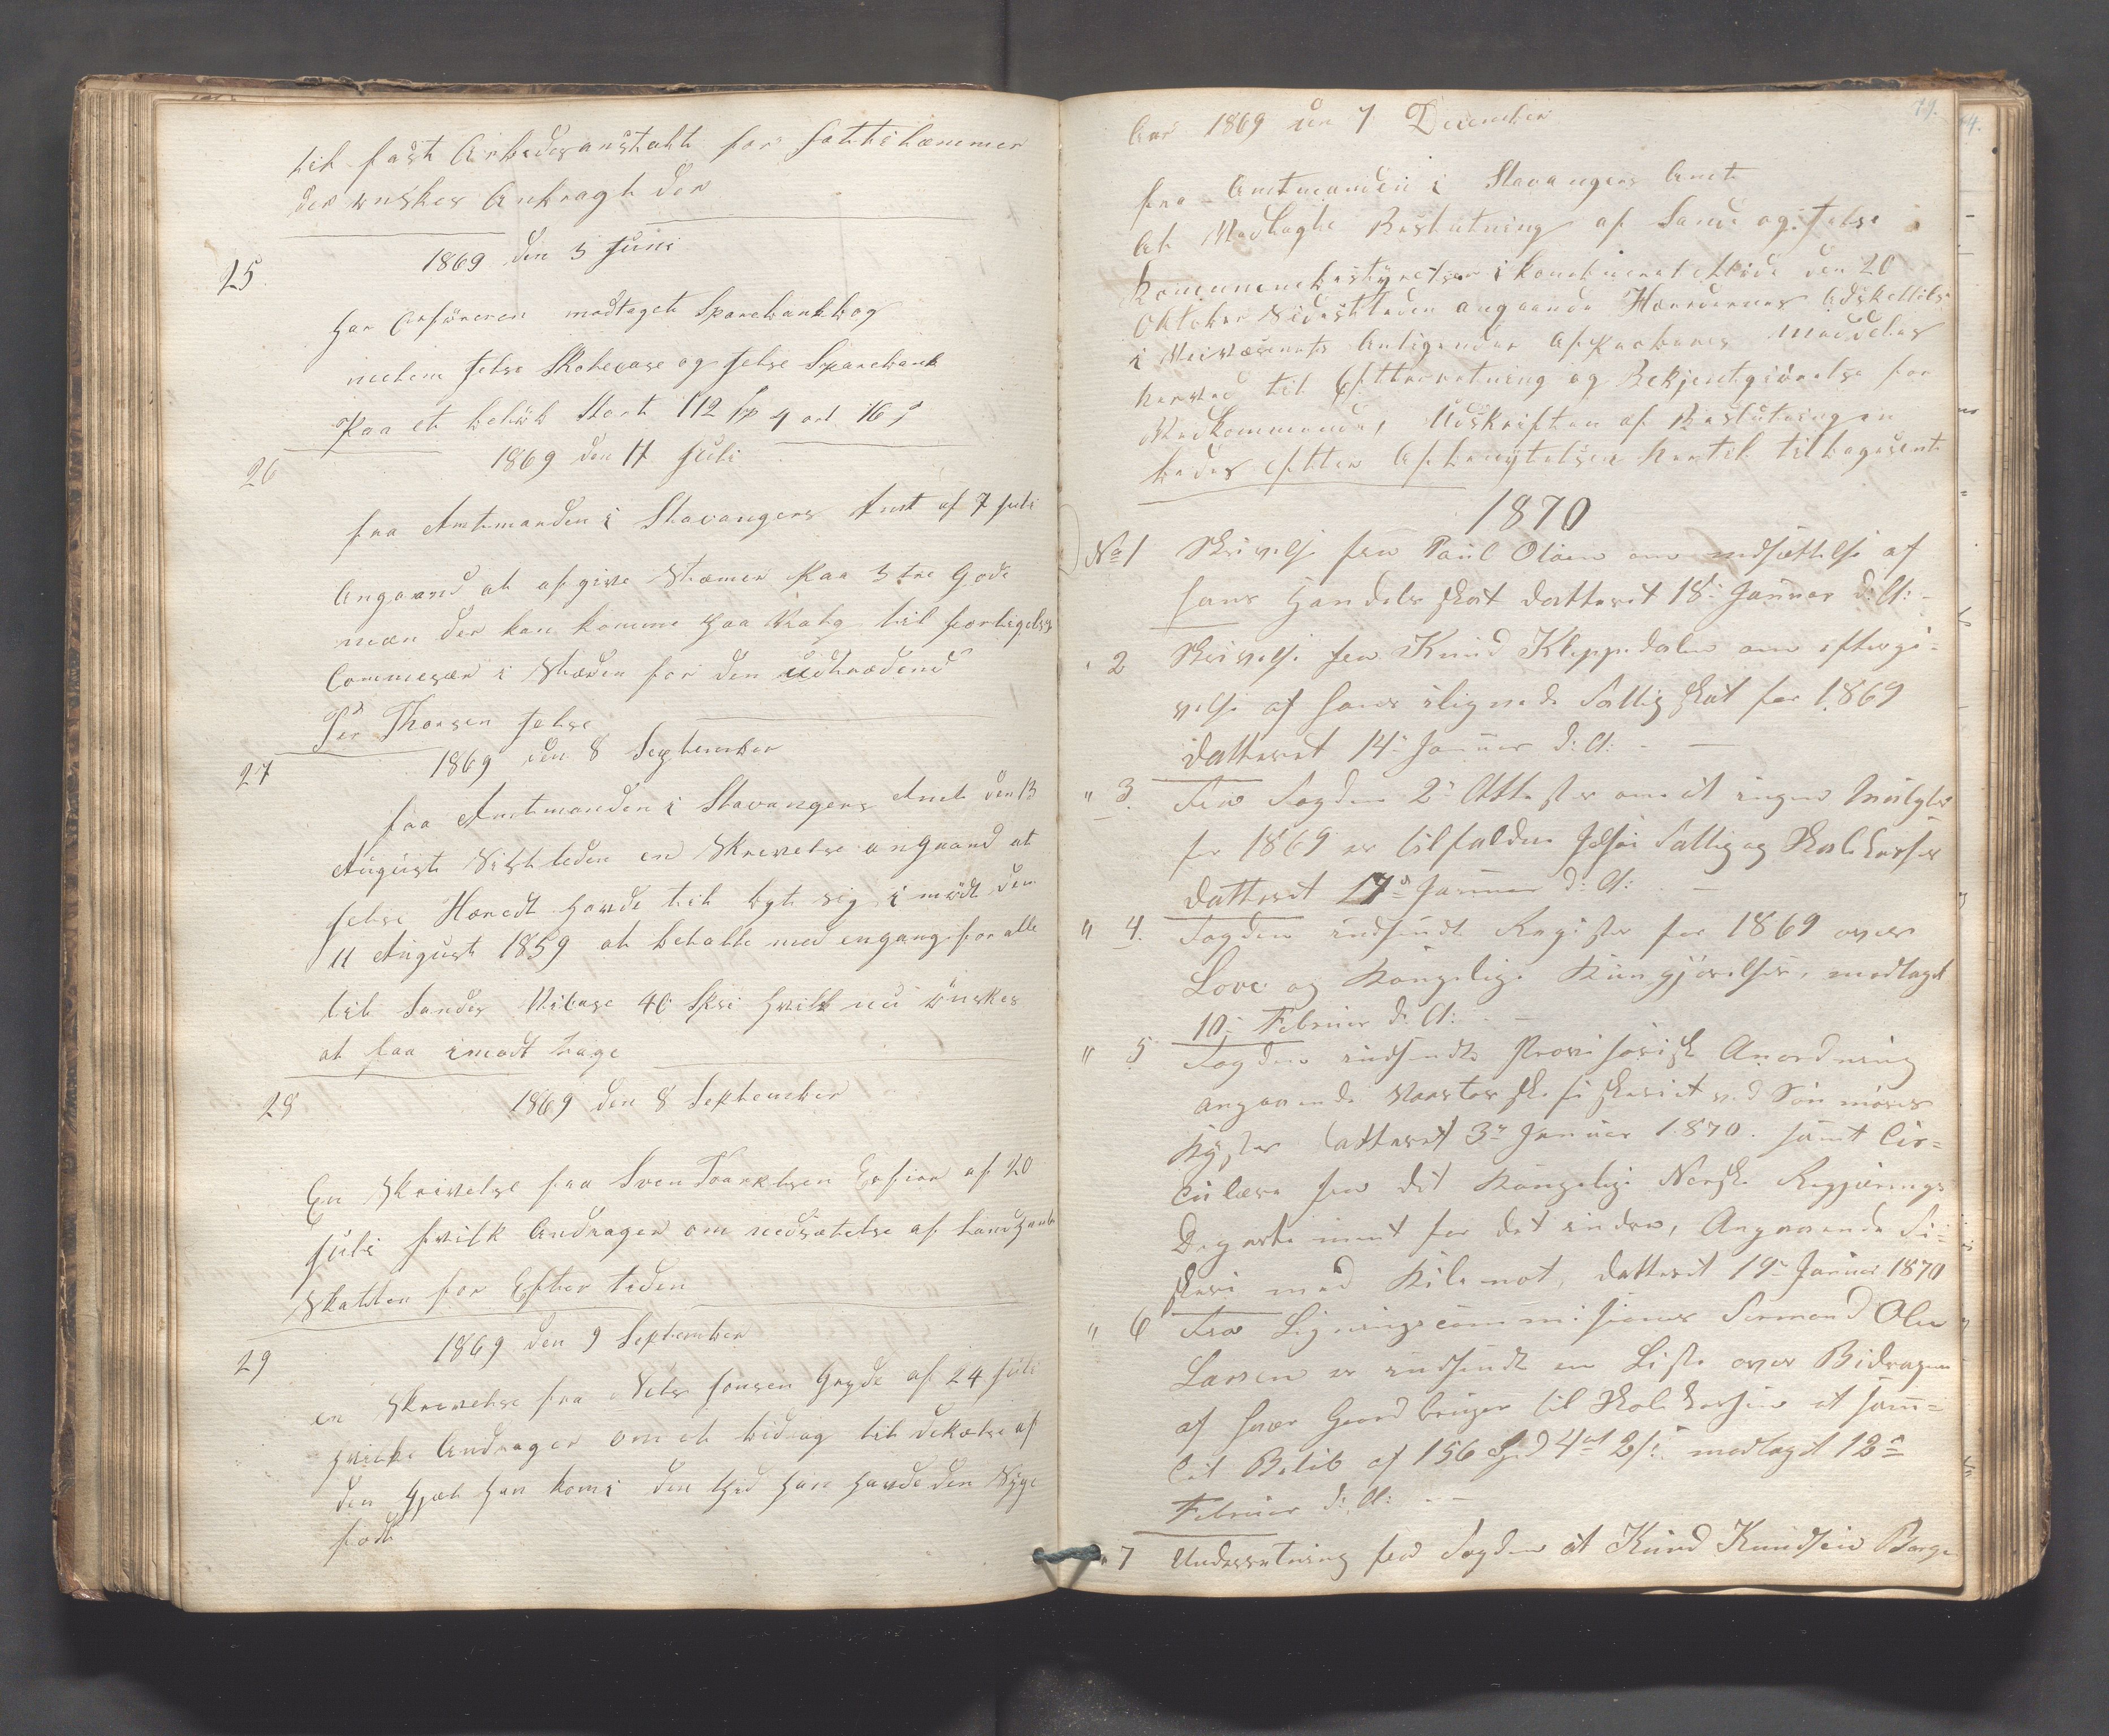 til fast Arbedsanstalt for fattilæmmer
der ønskes Antragt der
1869 den 3 Juni
25
har Orføreren modtaget Sparebankbog
melem Jelse Skolecase og Jelse Sparebank
Paa et beløb Stort 112 Sp 4 ort 16 s
26
1869 den 17 Juli
fra Amtmanden i Stavangers Amt af 7 Juli
Angaand at afgive Stemer paa 3 tre Gode
mæn der kan komme paa Valg til forligelses
Commesær i Stæden for den udtrædend
Per Thorsen Jelse
27
1869 den 8 September
fra Amtmanden i Stavangers Amt den 13
August Sistleden en Skrevelse angaand at
Jelse Hæredt havde til byt sig i mødt den
11 August 1859 at betalle med engang for alle
til Sandes Vibase 40 Spsi hvilk nu ønskes
at faa imodt tage
28
1869 den 8 September
En Skrivelse fra Sven Taarkelsen Erfior af 20
Juli hvilk Andrager om nedsætelse af Landhand
Skatten for Efter tiden
29
1869 den 9 September
en Skrevelse fra Nels Jonsen Hryde af 24 Juli
hvilke Andrager om et bidrag til dekælse af
den Gjæl han kom i den tid han havde den Syge
født
79.
4.
Aar 1869 den 7 December
fra Amtmanden i Stavangers Amt
At Modtaght Beslutning af Sande og Jelse
Kommunebestyrelser i kombineret Møde den 20
Oktober Sidestleden angaaende Hærredernes Adskellelse
i Veivæsenets Anligender Afparbares meddeles
herved til Efterretning og Bekjentgiørelse for
Vedkommende, Udskriften af Beslutningen
bedes efter Afbenyttelsen hertil tilbagesent
1870
No 1 Skrivelse fra Paul Olsen om nedsættelse af
hans Handels skat datteret 18de Januar d: A: -
" 2 Skrivelse fra Knud Kleppedalen om eftergi-
velse af hans ilignede Fattigskat for 1869
datteret 14de Januar d: A: - —
" 3 Fra Fogden 2de Attester om at ingen Mulgter
for 1869 er tilfalden Jelsøe Fattig og Skolekasser
datteret 17de Januar d: A: —
" 4. Fogden indsendt Register for 1869 over
Love og Kongelige Kungjørelser, modtaget
10de Februar d: A: - —
" 5 Fogden indsendte Provisorisk Anordning
angaaende Vaartorskefiskeriet ved Søndmørs
Kyster datteret 3de Januar 1870. samt Cir-
culære fra det Kongelige Norske Regjerings
Departement for det indre, Angaaende Fi-
skeri med Kilenot, datteret 19de Januar 1870
" 6 Fra Ligningscommisionens Formand Ole
Larsen er indsendt en Liste over Bidragene
af hver Gaardbruger til Skolekassen at sam-
let Beløb af 156 Spd 4 ort 2 s. modtaget 12te
Februar d: A: - —
" 7 Underretning fra Fogden at Knud Knudsen Borge